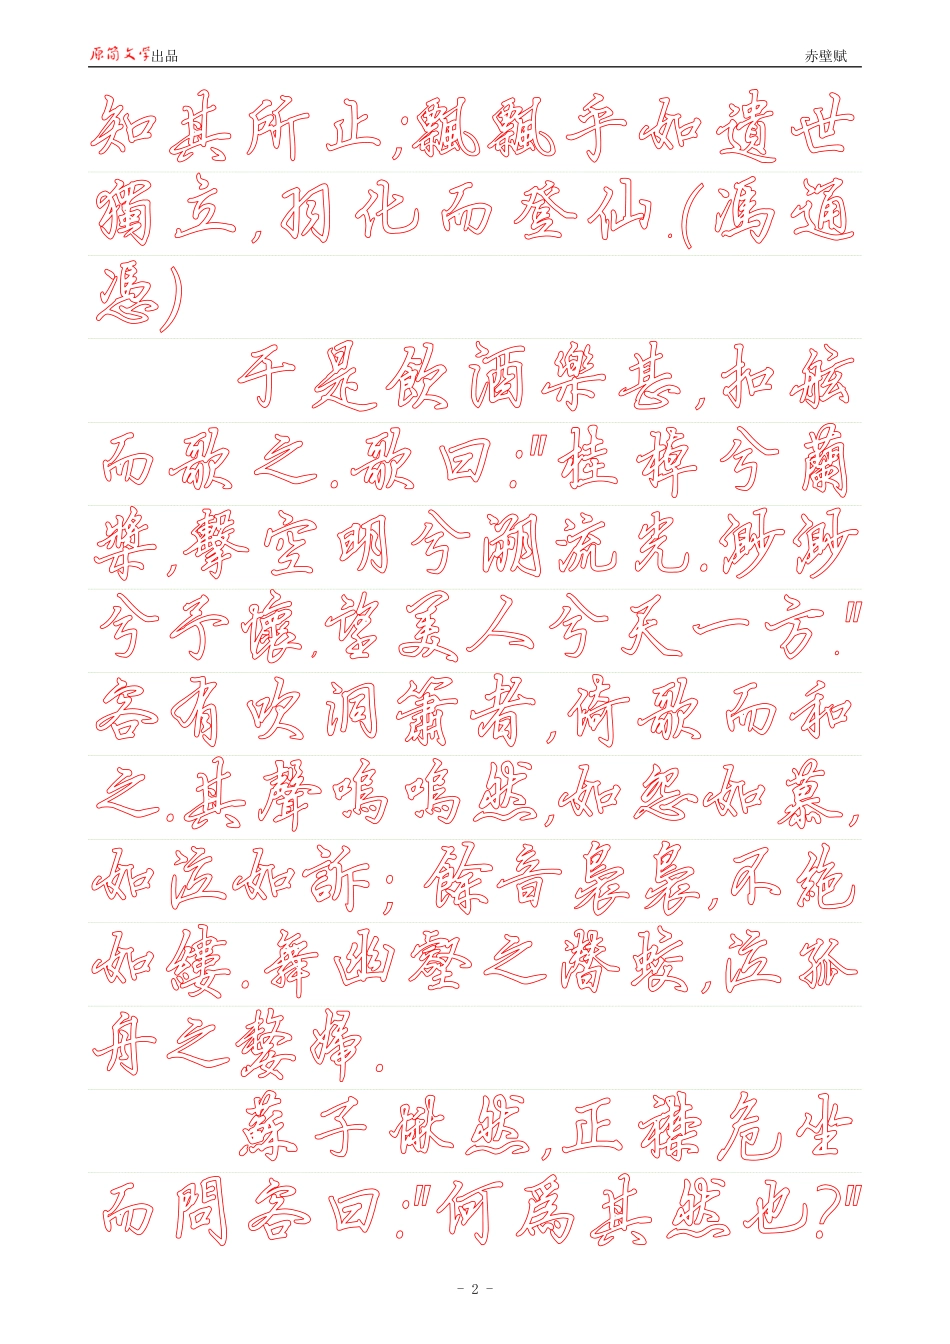 原简文学出品 赤壁赋
知其所止;飄飄乎如遺世
獨立,羽化而登仙.(馮通
憑)
于是飲酒樂甚,扣舷
而歌之.歌曰:"桂棹兮蘭
槳,擊空明兮溯流光.渺渺
兮予懷,望美人兮天一方."
客有吹洞簫者,倚歌而和
之.其聲嗚嗚然,如怨如慕,
如泣如訴;餘音裊裊,不絕
如縷.舞幽壑之潛蛟,泣孤
舟之嫠婦.
蘇子愀然,正襟危坐
而問客曰:"何爲其然也?"
- 2 -